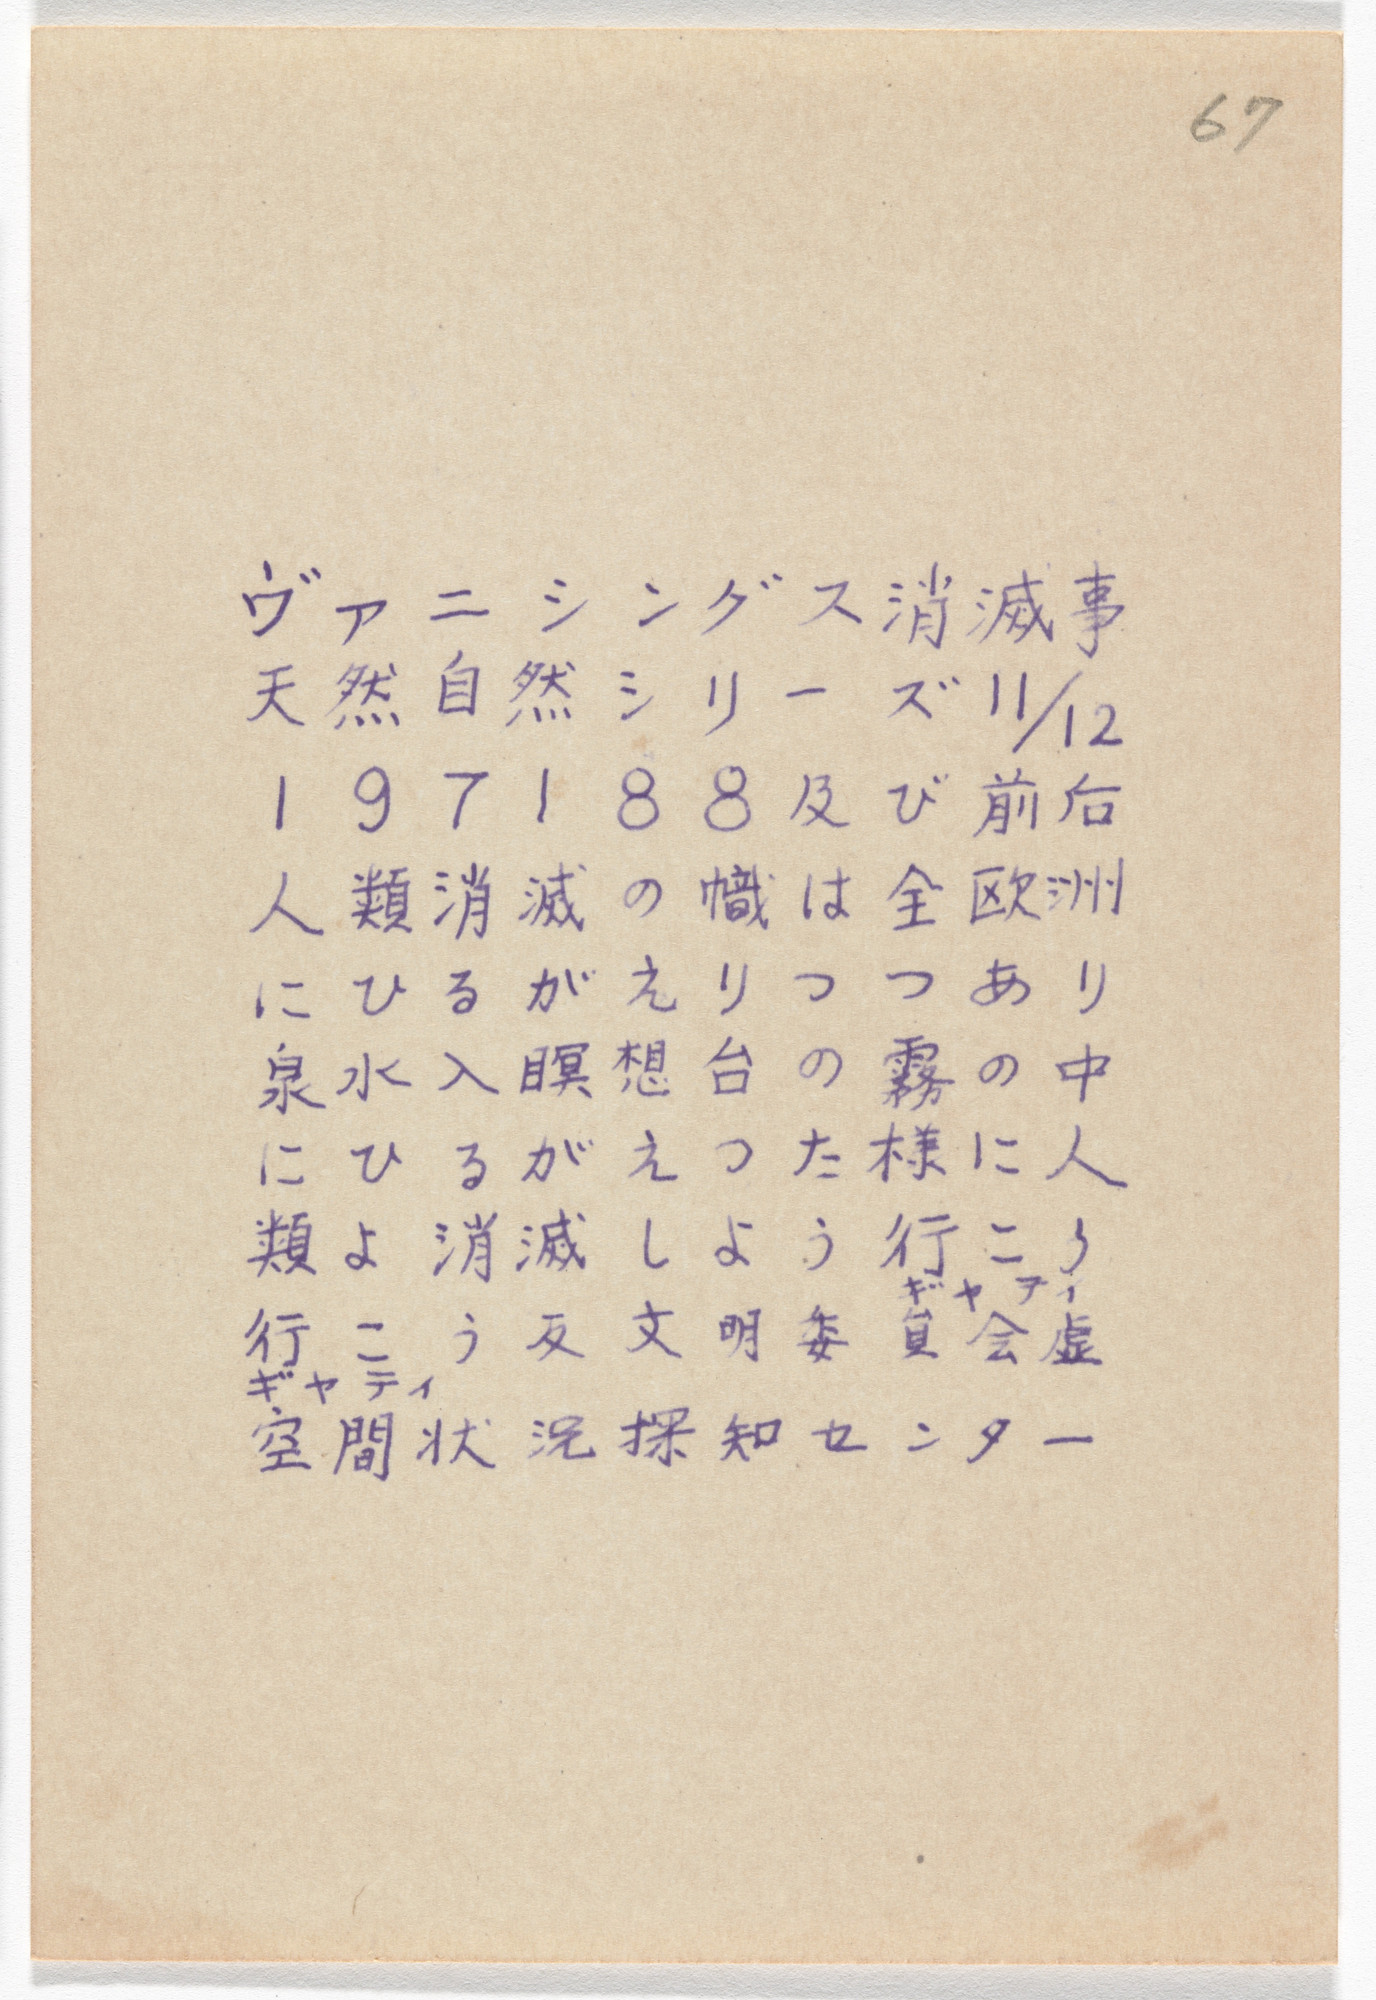 67
ヴァニシングス消滅事
天然自然シリーズ11/12
197188及び前后
人類消滅の幟は全欧洲
にひるがえりつつあり
泉水入瞑想台の霧の中
にひるがえつた様に人
類よ消滅しよう行こう
ギャティ
行こう反文明委員会虚
ギャティ
空間状況探知センター